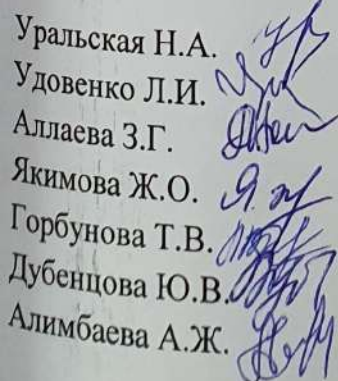 Уральская Н.А.
Удовенко Л.И.
Аллаева З.Г.
Якимова Ж.О.
Горбунова Т.В.
Дубенцова Ю.В.
Алимбаева А.Ж.